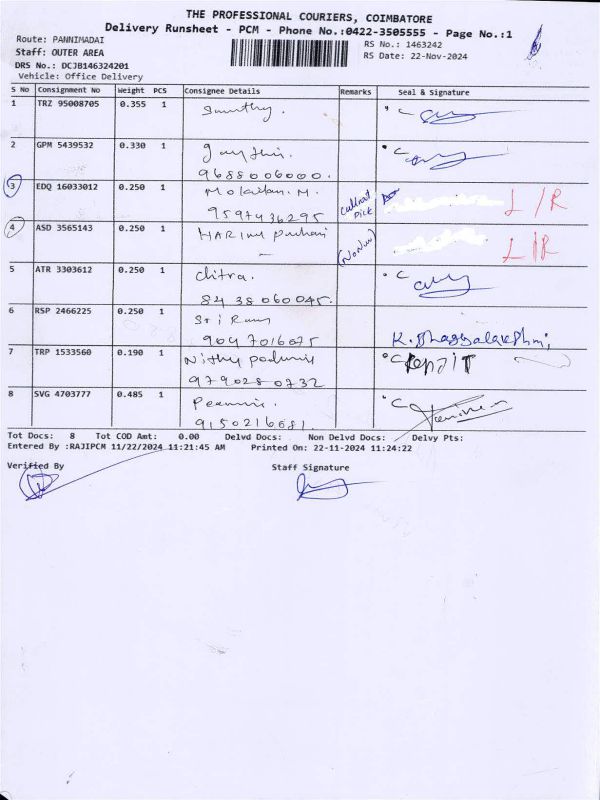 THE PROFESSIONAL COURIERS, COIMBATORE
Delivery Runsheet - PCM - Phone No.:0422-3505555 - Page No.:1
Route: PANNIMADAI
RS No.: 1463242
Staff: OUTER AREA
RS Date: 22-Nov-2024
DRS No.: DCJB146324201
Vehicle: Office Delivery
S No Consignment No Weight PCS Consignee Details Remarks Seal & Signature
1 TRZ 95008705 0.355 1
2 GPM 5439532 0.330 1
9688006000.
3 EDQ 16033012 0.250 1 L/R
9597436295
4 ASD 3565143 0.250 1 L/R
5 ATR 3303612 0.250 1 Chitra.
8438060045.
6 RSP 2466225 0.250 1 Sri Ram
9047016075 K. Bhagyalakshmi,
7 TRP 1533560 0.190 1
9790280732
8 SVG 4703777 0.485 1
9150216681.
Tot Docs: 8 Tot COD Amt: 0.00 Delvd Docs: Non Delvd Docs: Delvy Pts:
Entered By :RAJIPCM 11/22/2024 11:21:45 AM Printed On: 22-11-2024 11:24:22
Verified By Staff Signature